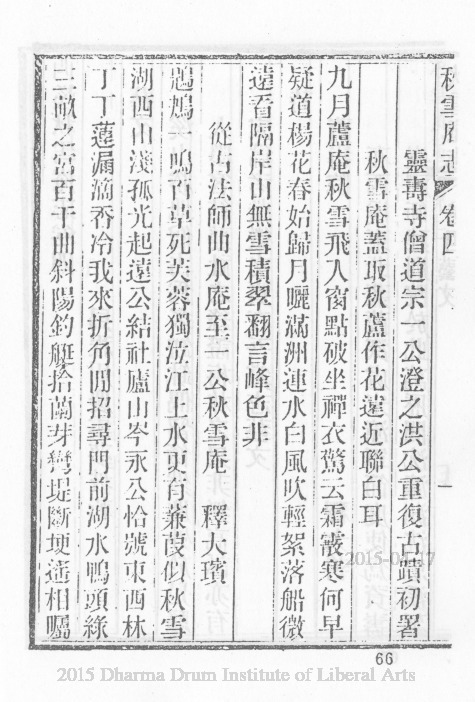 秋雪庵志 卷四 一
靈壽寺僧道宗一公澄之洪公重復古蹟初署
秋雪庵蓋取秋蘆作花遠近聯白耳
九月蘆庵秋雪飛入窗點破坐禪衣驚云霜霰寒何早
疑道楊花春始歸月曬滿洲連水白風吹輕絮落船微
遠看隔岸山無雪積翠翻言峰色非
從古法師曲水庵至一公秋雪庵 釋大𤩽
鶗鴂一鳴百草死芙蓉獨泣江上水更有蒹葭似秋雪
湖西山淺孤光起遠公結社廬山岑永公恰號東西林
丁丁蓮漏滴香冷我來折角閒招尋門前湖水鴨頭綠
三畝之宮百千曲斜陽釣艇拾蘭芽彎堤斷埂遙相矚
66
2015-04-17
2015 Dharma Drum Institute of Liberal Arts